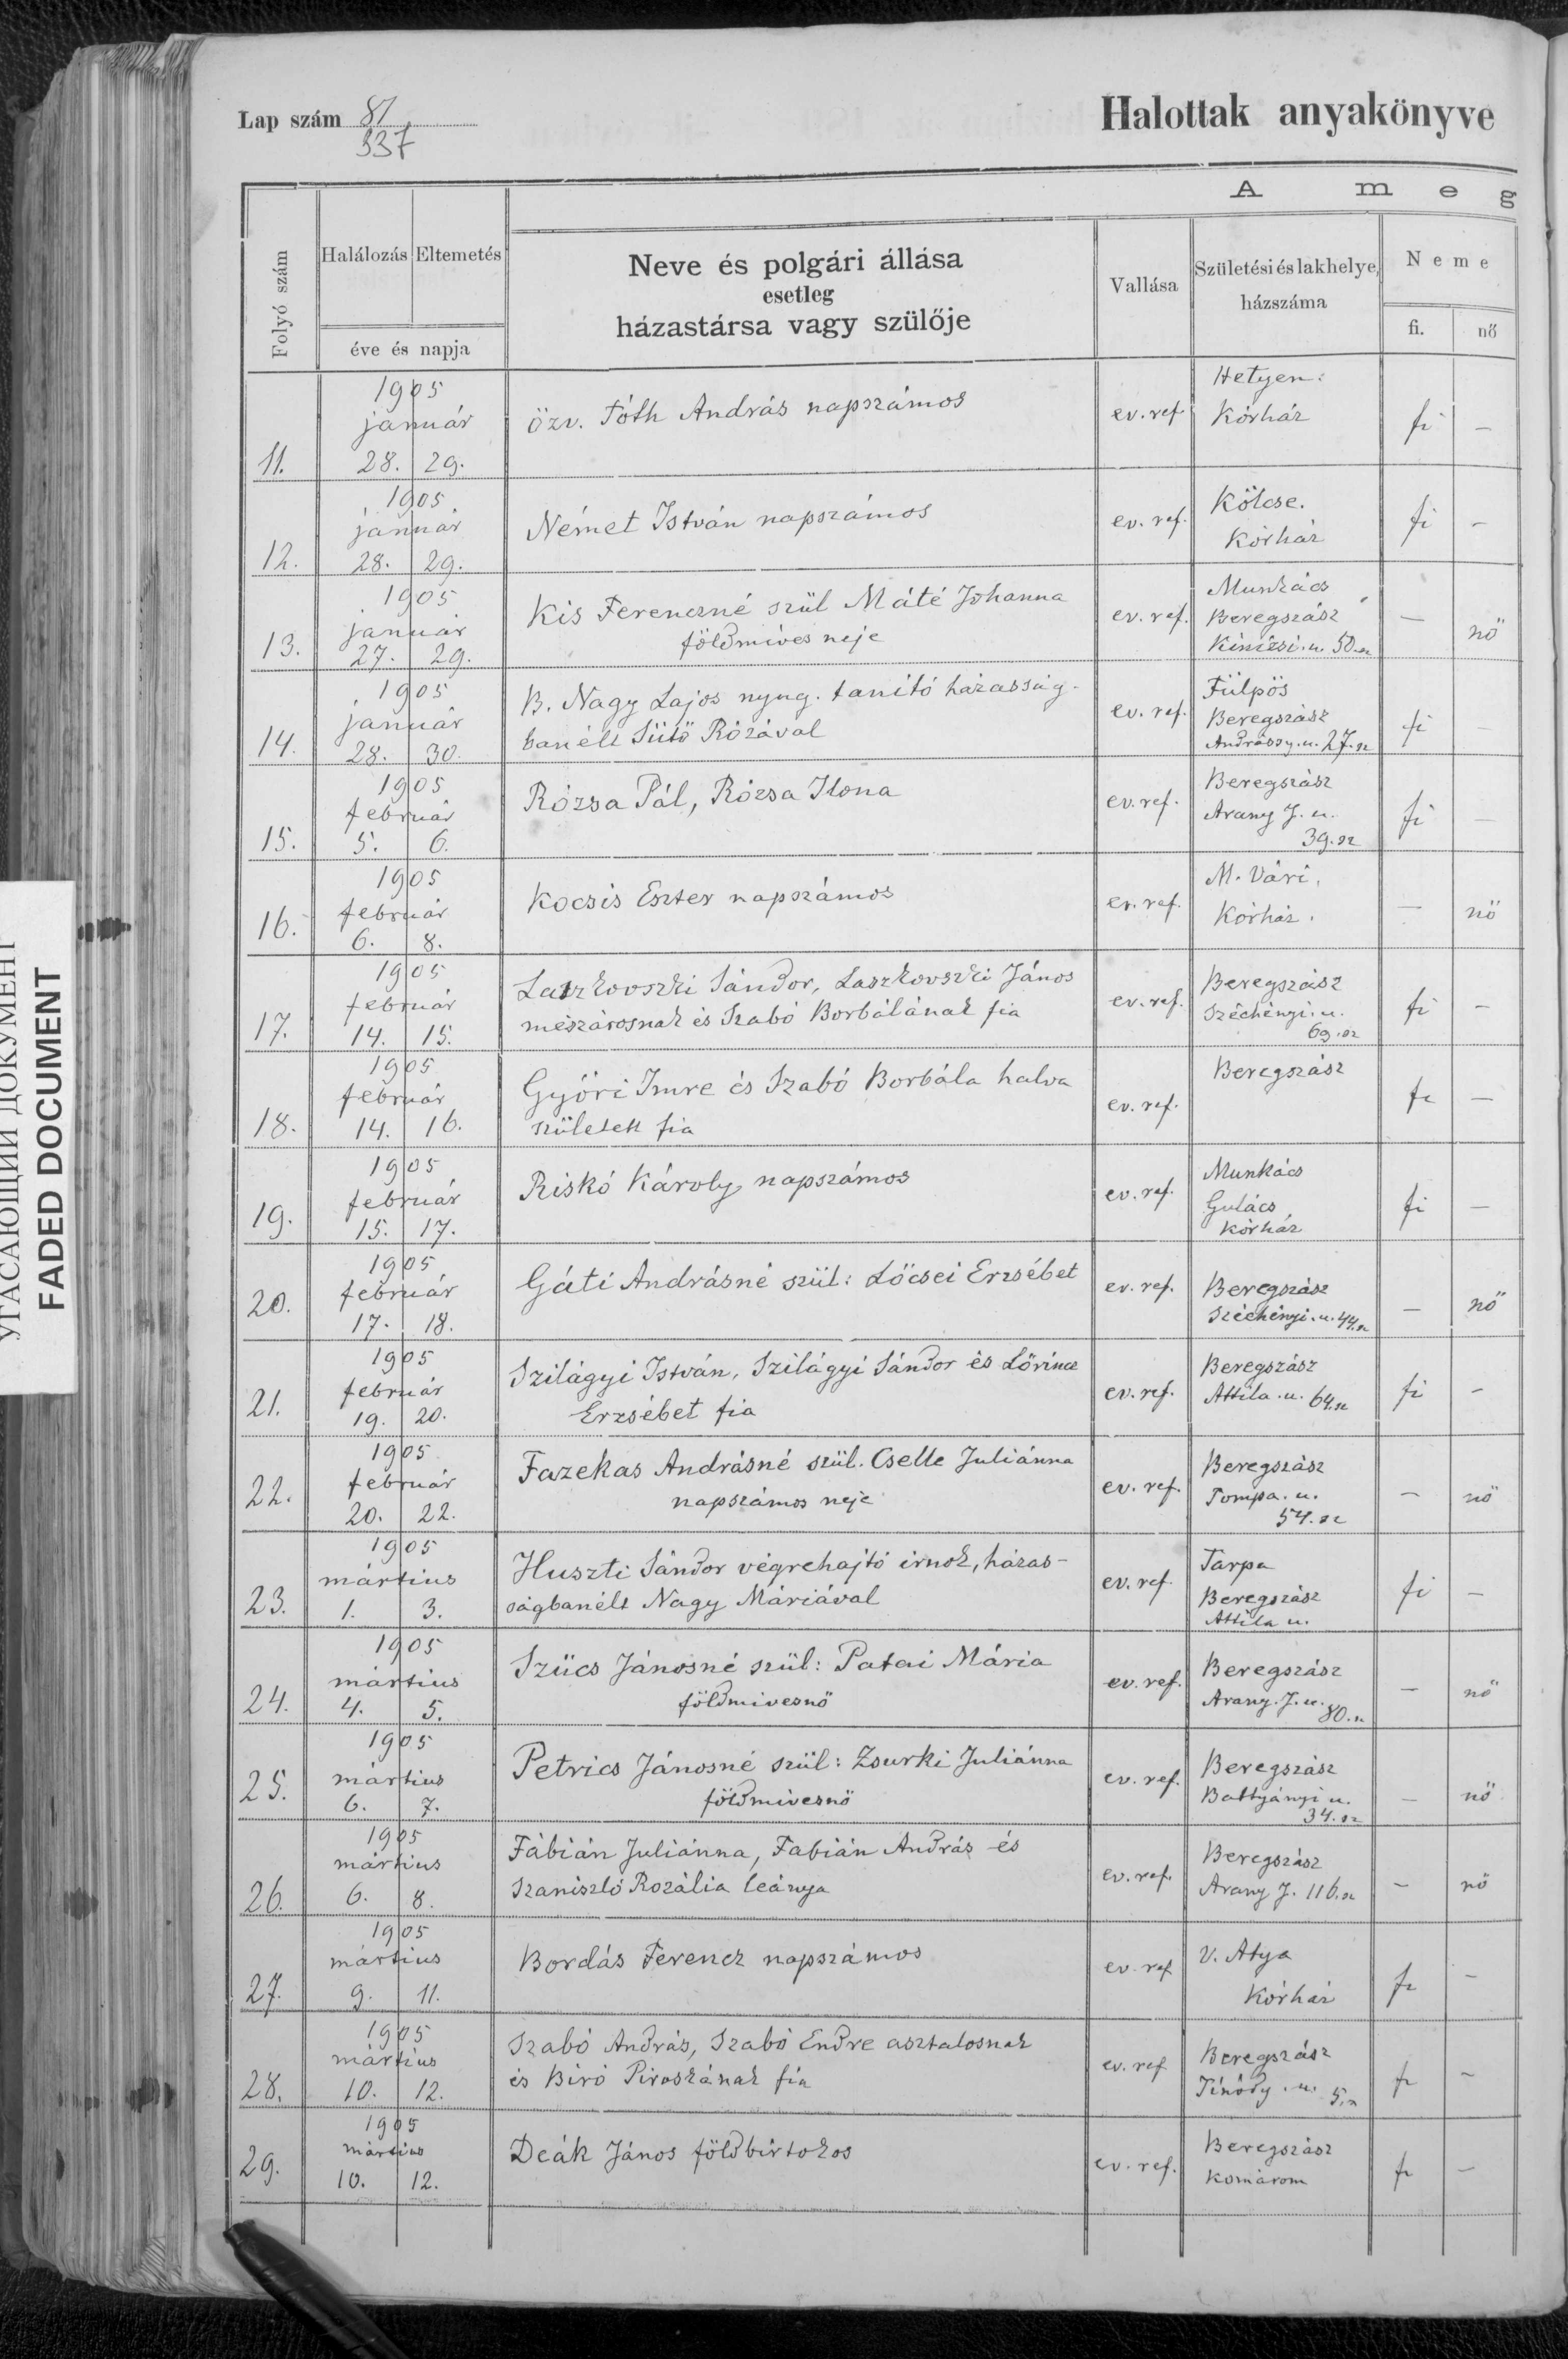 Lap szám 81
337
Halottak anyakönyve
A m e g
Folyó szám
Halálozás Eltemetés
éve és napja
Neve és polgári állása
esetleg
házastársa vagy szülője
Vallása
Születési és lakhelye,
házszáma
Neme
fi. nő
1905
január
11. 28. 29.
özv. Tóth András napszámos
ev. ref
Hetyen.
Kórház
fi —
1905
január
12. 28. 29.
Német István napszámos
ev. ref.
Kölcse.
Kórház
fi —
1905
január
13. 27. 29.
Kis Ferenczné szül Máté Johanna
földmíves neje
ev. ref.
Munkács
Beregszász
Kinizsi. u. 50. sz
— nő
1905
január
14. 28. 30.
B. Nagy Lajos nyug. tanító házasság-
banélt Sütő Rózával
ev. ref.
Fülpös
Beregszász
Andrássy. u. 27. sz
fi —
1905
február
15. 5. 6.
Rózsa Pál, Rózsa Ilona
ev. ref.
Beregszász
Arany J. u.
39. sz
fi —
1905
február
16. 6. 8.
Kocsis Eszter napszámos
ev. ref.
M. Vári.
Kórház.
— nő
1905
február
17. 14. 15.
Laszkovszki Sándor, Laszkovszki János
mészárosnak és Szabó Borbálának fia
ev. ref.
Beregszász
Széchényi. u.
69. sz
fi —
1905
február
18. 14. 16.
Győri Imre és Szabó Borbála halva
született fia
ev. ref.
Beregszász
fi —
1905
február
19. 15. 17.
Riskó Károly, napszámos
ev. ref.
Munkács
Gulács
Kórház
fi —
1905
február
20. 17. 18.
Gáti Andrásné szül: Lőcsei Erzsébet
ev. ref.
Beregszász
Széchényi. u. 44. sz
— nő
1905
február
21. 19. 20.
Szilágyi István, Szilágyi Sándor és Lőrincz
Erzsébet fia
ev. ref.
Beregszász
Attila. u. 64. sz
fi —
1905
február
22. 20. 22.
Fazekas Andrásné szül. Cselle Juliánna
napszámos neje
ev. ref.
Beregszász
Tompa. u.
54. sz
— nő
1905
mártius
23. 1. 3.
Huszti Sándor végrehajtó irnok, házas-
ságbanélt Nagy Máriával
ev. ref.
Tarpa
Beregszász
Attila u.
fi —
1905
mártius
24. 4. 5.
Szücs Jánosné szül: Patai Mária
földmivesnő
ev. ref.
Beregszász
Arany. J. u. 80. sz
— nő
1905
mártius
25. 6. 7.
Petrics Jánosné szül: Zsurki Juliánna
földmivesnő
ev. ref.
Beregszász
Battyányi u.
34. sz
— nő
1905
mártius
26. 6. 8.
Fábián Juliánna, Fabián András és
Szaniszló Rozália leánya
ev. ref.
Beregszász
Arany J. 116. sz
— nő
1905
mártius
27. 9. 11.
Bordás Ferencz napszámos
ev. ref
V. Atya
Kórház
fi —
1905
mártius
28. 10. 12.
Szabó András, Szabó Endre asztalosnak
és Biró Piroskának fia
ev. ref
Beregszász
Tinódy. u. 5. sz
fi —
1905
mártius
29. 10. 12.
Deák János földbirtokos
ev. ref.
Beregszász
Komárom
fi —
УГАСАЮЩИЙ ДОКУМЕНТ
FADED DOCUMENT